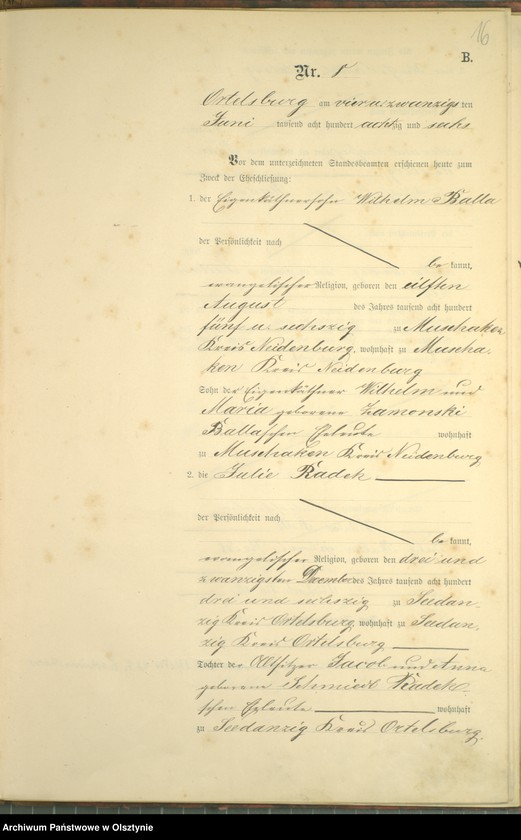 16
B.
Nr. 8
Ortelsburg am vier u. zwanzigsten
Juni tausend acht hundert achtzig und sechs
Vor dem unterzeichneten Standesbeamten erschienen heute zum
Zweck der Eheschließung:
1. der Eigenkäthnersohn Wilhelm Balla
der Persönlichkeit nach
be kannt,
evangelischer Religion, geboren den eilften
August des Jahres tausend acht hundert
fünf u. sechszig zu Muschaken
Kreis Neidenburg, wohnhaft zu Muscha-
ken Kreis Neidenburg
Sohn der Eigenkäthner Wilhelm und
Maria geborene Zamonski
Balla'schen Eheleute wohnhaft
zu Muschaken Kreis Neidenburg
2. die Julie Radek
der Persönlichkeit nach
be kannt,
evangelischer Religion, geboren den drei und
zwanzigsten December des Jahres tausend acht hundert
drei und sechszig zu Saedan-
zig Kreis Ortelsburg, wohnhaft zu Saedan-
zig Kreis Ortelsburg
Tochter der Altsitzer Jacob und Anna
geborene Schmiedt Radek-
schen Eheleute wohnhaft
zu Saedanzig Kreis Ortelsburg.
Archiwum Państwowe w Olsztynie